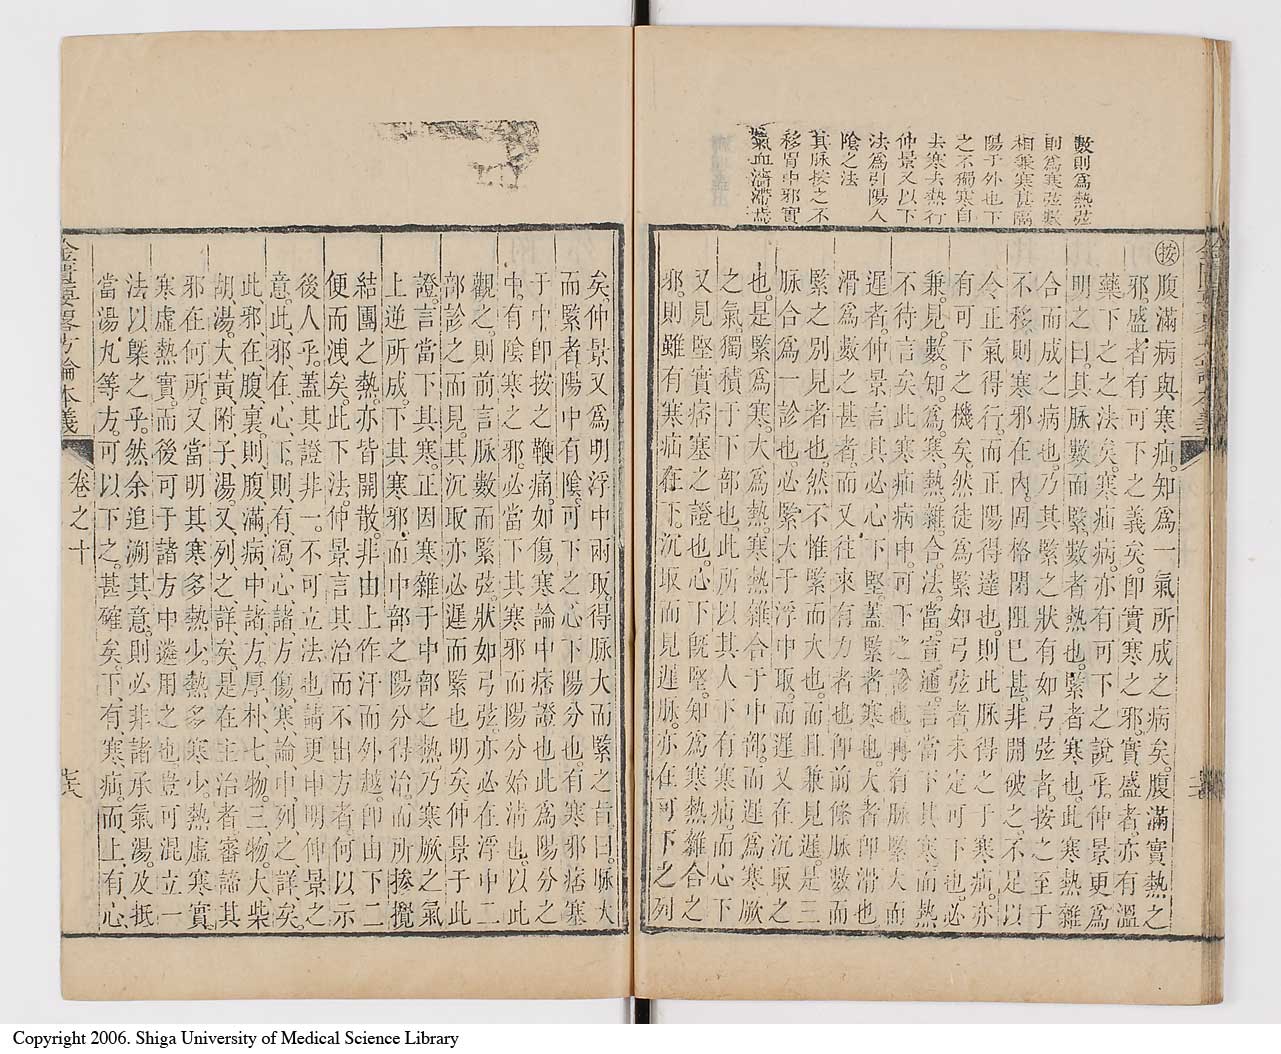 數則爲熱弦
則爲寒弦數
相乘寒甚隔
陽于外也下
之不獨寒自
去寒去熱行
仲景又以下
法爲引陽入
陰之法
其脉按之不
移胃中邪實
氣血濟滯焉
按腹滿病與寒疝。知爲一氣所成之病矣。腹滿實熱之
邪。盛者有可下之義矣。卽實寒之邪。實盛者。亦有溫
藥下之之法矣。寒疝病。亦有可下之說乎。仲景更爲
明之曰。其脉數而緊。數者熱也。緊者寒也。此寒熱雜
合而成之病也。乃其緊之狀有如弓弦者。按之至于
不移。則寒邪在內。固格閉阻已甚。非開破之。不足以
令正氣得行。而正陽得達也。則此脉得之于寒疝。亦
有可下之機矣。然徒爲緊如弓弦者。未定可下也。必
兼見數。知爲寒熱雜合。法當言通。言當下其寒而熱
不待言矣。此寒疝病中。可下之診也。再有脉緊大而
遲者。仲景言其必心下堅。蓋緊者寒也。大者卽滑也
滑爲數之甚者。而又往來有力者也。卽前條脉數而
緊之別見者也。然不惟緊而大也。而且兼見遲。是三
脉合爲一診也。必緊大于浮中取。而遲又在沉取之
也。是緊爲寒。大爲熱。寒熱雜合于中部。而遲爲寒厥
之氣。獨積于下部也。此所以其人下有寒疝。而心下
又見堅實痞塞之證也。心下旣堅。知爲寒熱雜合之
邪。則雖有寒疝在下。沉取而見遲脉。亦在可下之列
矣。仲景又爲明浮中兩取。得脉大而緊之旨。曰。脉大
而緊者。陽中有陰。可下之。心下陽分也。有寒邪痞塞
于中。卽按之鞕痛。如傷寒論中痞證也。此爲陽分之
中。有陰寒之邪。必當下其寒邪。而陽分始淸也。以此
觀之。則前言脉數而緊弦。狀如弓弦。亦必在浮中二
部診之而見。其沉取亦必遲而緊也明矣。仲景于此
證。言當下其寒。正因寒雜于中部之熱。乃寒厥之氣
上逆所成。下其寒邪。而中部之陽分得治。而所摻攪
結團之熱。亦皆開散。非由上作汗而外越。卽由下二
便而洩矣。此下法。仲景言其治而不出方者。何以示
後人乎。蓋其證非一。不可立法也。請更申明仲景之
意。此邪在心下。則有瀉心諸方。傷寒論中。列之詳矣。
此邪在腹裏。則腹滿病中諸方。厚朴七物。三物。大柴
胡湯。大黃附子湯。又列之詳矣。是在主治者審諦其
邪在何所。又當明其寒多熱少。熱多寒少。熱虛寒實。
寒虛熱實。而後可于諸方中遴用之也。豈可混立一
法。以槩之乎。然余追溯其意。則必非諸承氣湯。及抵
當湯丸等方。可以下之。甚確矣。下有寒疝。而上有心
金匱要畧方論本義
卷之十
Copyright 2006. Shiga University of Medical Science Library